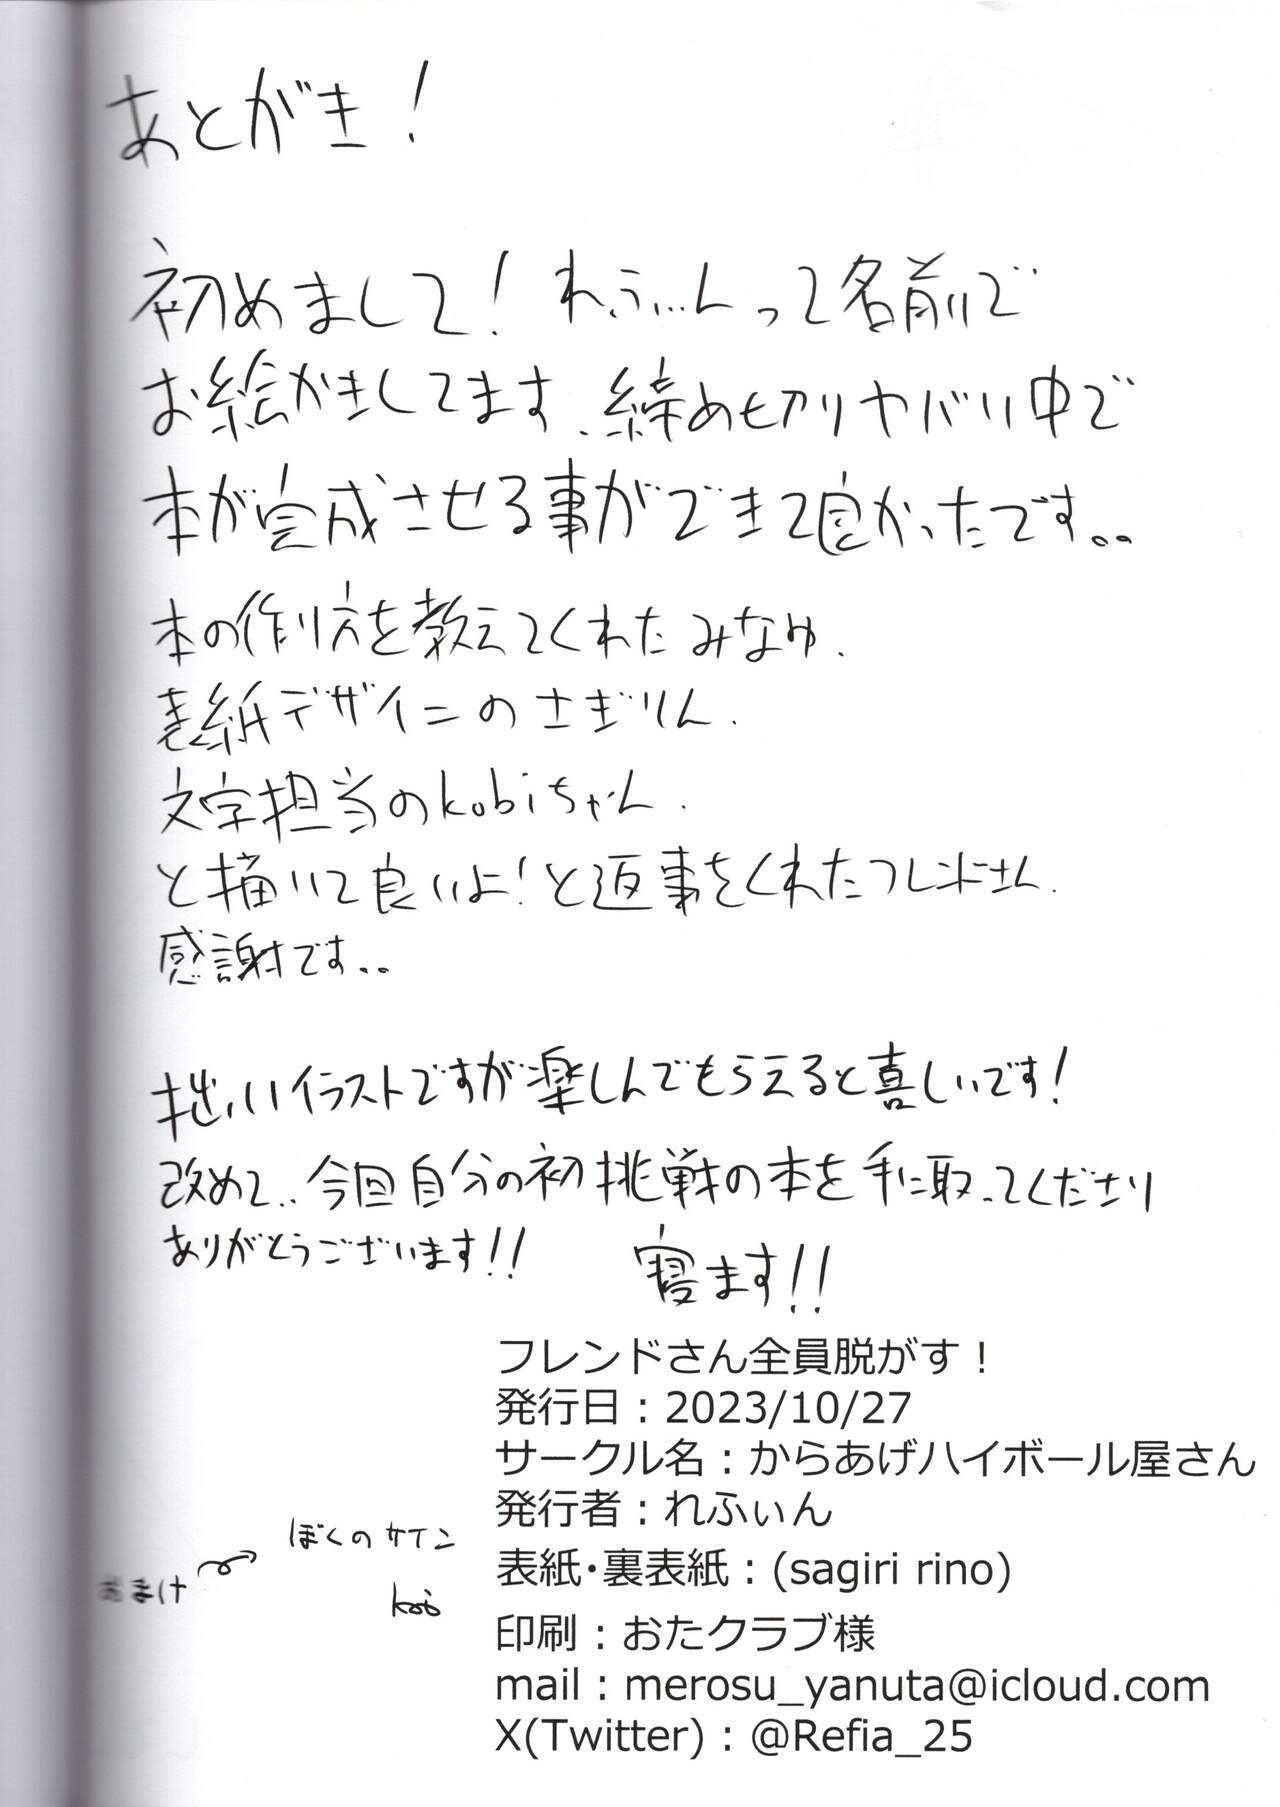 あとがき!
初めまして! れふぃんって名前で
お絵かきしてます、締め切りヤバい中で
本が完成させる事ができて良かったです。。
本の作り方を教えてくれたみなゆ、
表紙デザインのさぎりん、
文字担当のkobiちゃん、
と描いて良いよ!と返事をくれたフレンドさん、
感謝です。。
拙いイラストですが楽しんでもらえると喜しいです!
改めて、、今回自分の初挑戦の本を手に取ってくださり
ありがとうございます!!
寝ます!!
フレンドさん全員脱がす!
発行日:2023/10/27
サークル名:からあげハイボール屋さん
発行者:れふぃん
表紙・裏表紙:(sagiri rino)
印刷:おたクラブ様
mail:merosu_yanuta@icloud.com
X(Twitter):@Refia_25
おまけ
ぼくのサイン